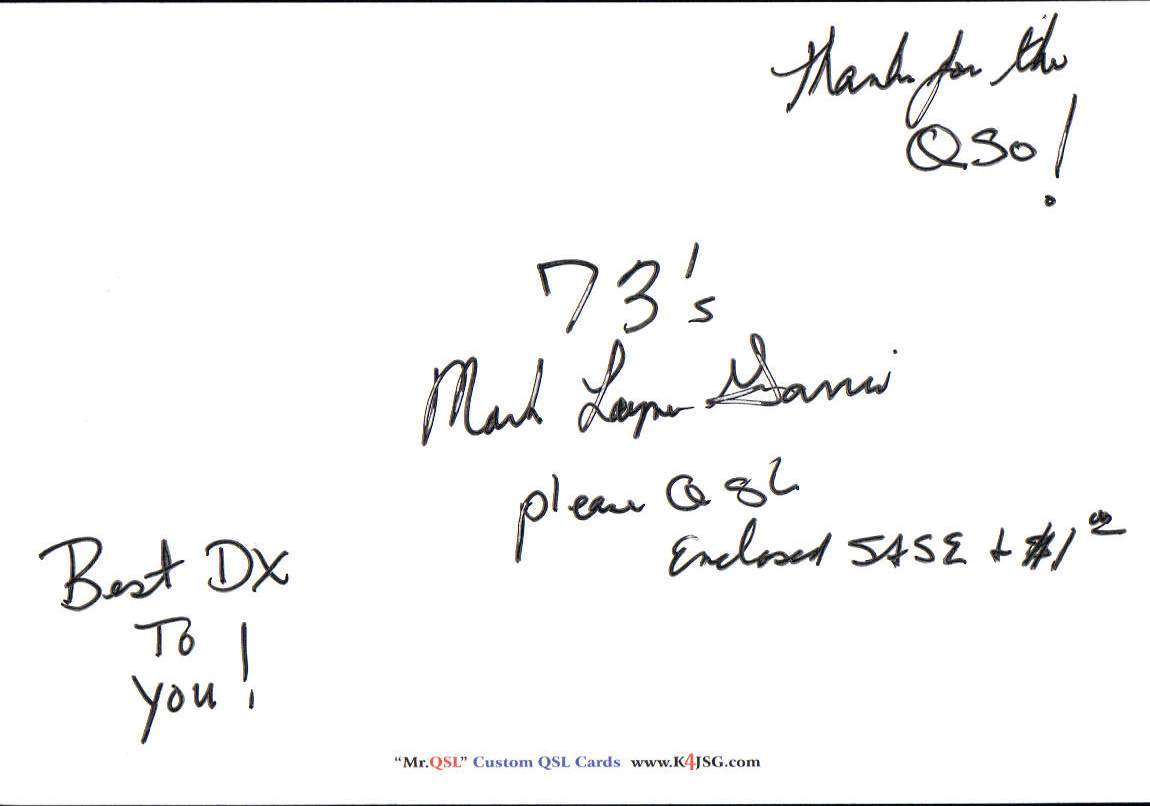 Thanks for the
QSO!
73's
Mark
please QSL
Enclosed SASE + $1 00
Best DX
To
you!
"Mr.QSL" Custom QSL Cards www.K4JSG.com